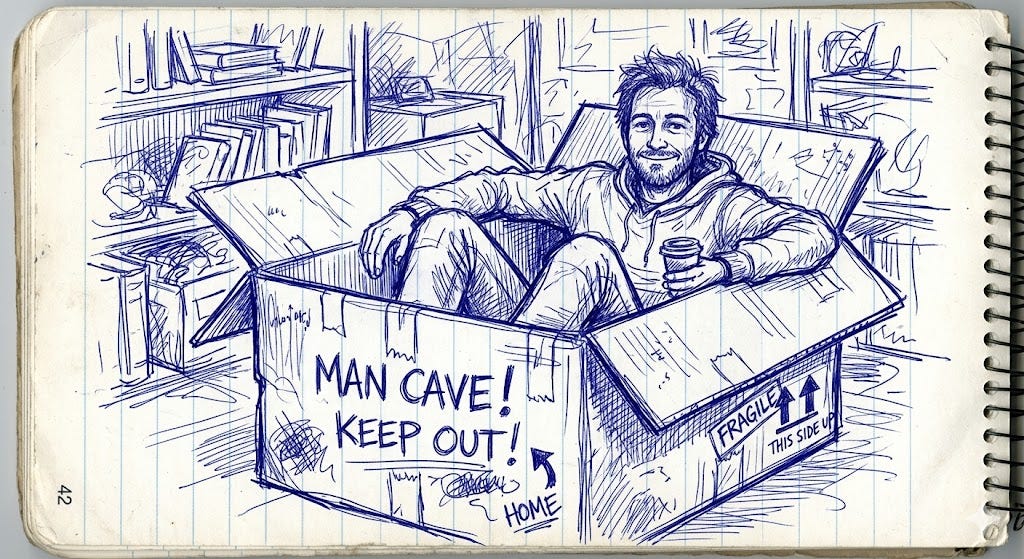 MAN CAVE!
KEEP OUT!
HOME
FRAGILE
THIS SIDE UP
42